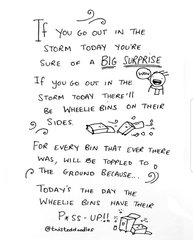 If you go out in the
storm today you're
sure of a BIG SURPRISE
If you go out in the
storm today there'll
be wheelie bins on their
sides.
For every bin that ever there
was, will be toppled to
the ground because...
Today's the day the
wheelie bins have their
P*ss-up!!
@twisteddoodles